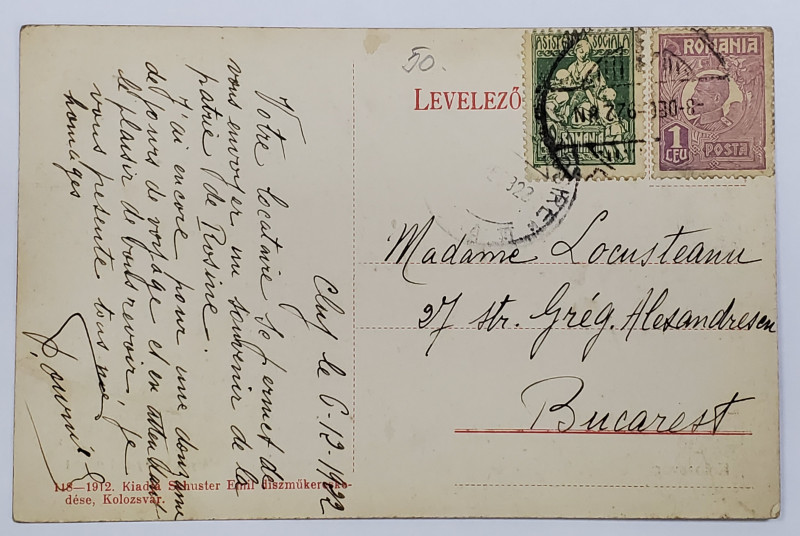 50.
LEVELEZŐ
ASIST SOCIALA
ROMANIA
1
LEU
POSTA
Cluj le 6-12-1922
Votre locataire se permet de
vous envoyer un souvenir de la
patrie de Rosine.
J'ai encore pour une douzaine
de jours de voyage et en attendant
le plaisir de vous revoir, je
vous présente tous mes
homages
Madame Locusteanu
27 str. Grég. Alesandrescu
Bucarest
118—1912. Kiadja Schuster Emil diszműkereske-
dése, Kolozsvár.